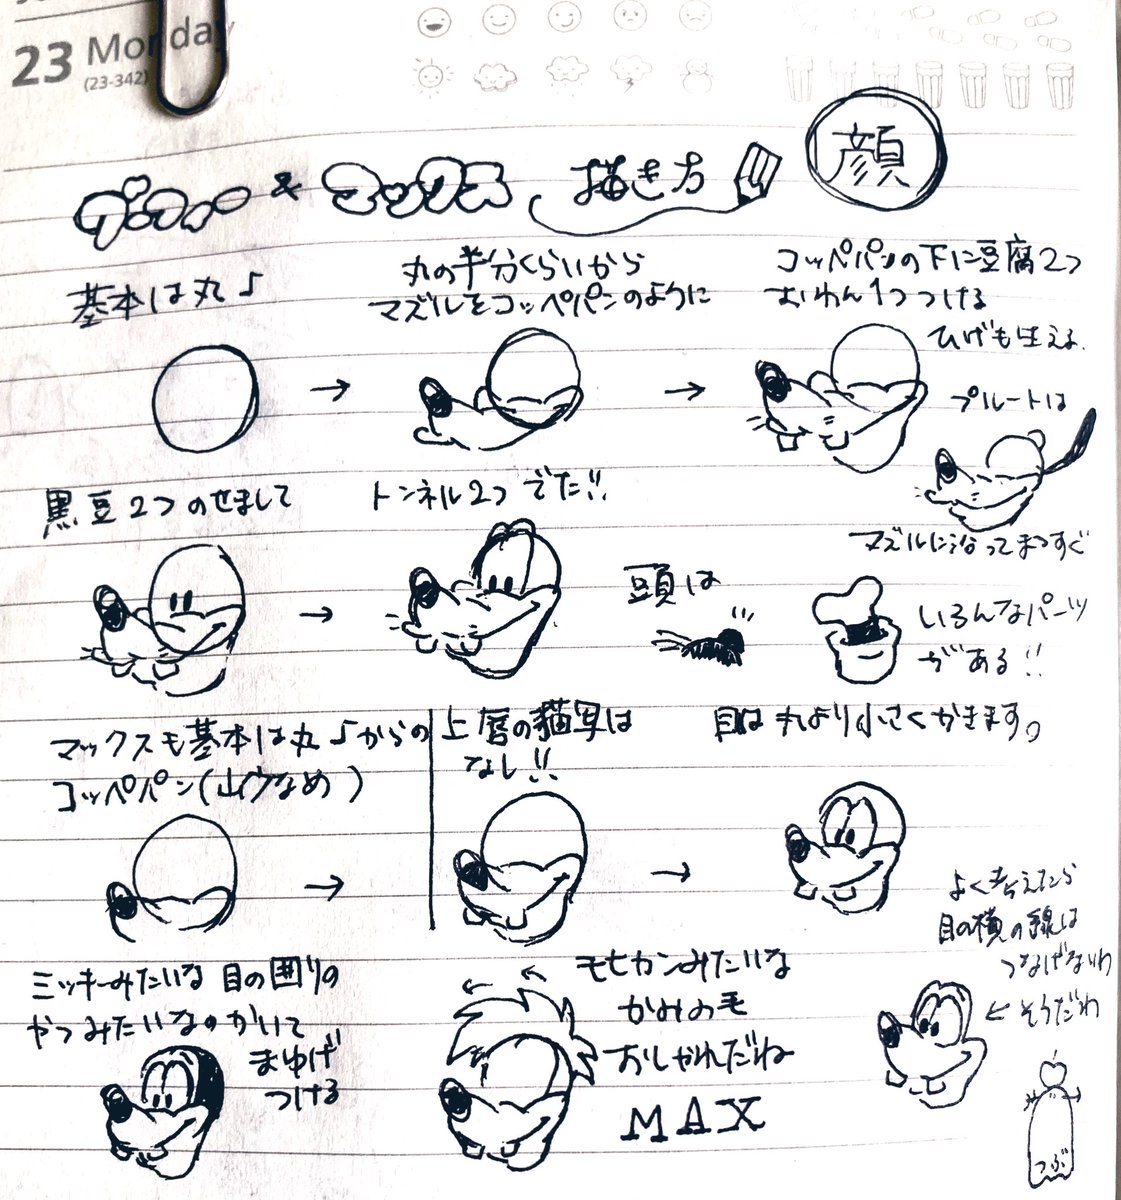 23 Monday
(23-342)
グーフィー & マックス 描き方
顔
基本は丸♪
丸の半分くらいから
マズルをコッペパンのように
コッペパンの下に豆腐2つ
おわん1つつける
ひげも生える
プルートは
マズルに沿ってまっすぐ
黒豆2つのせまして
トンネル2つでた!!
頭は
いろんなパーツ
がある!!
マックスも基本は丸♪からの
コッペパン(山ウなめ)
上唇の猫写は
なし!!
目は丸より小さくかきます。
よく考えたら
目の横の線は
つなげないわ
← そうだわ
ミッキーみたいな目の囲りの
やつみたいなのかいて
まゆげ
つける
モヒカンみたいな
かみの毛
おしゃれだね
MAX
つぶ